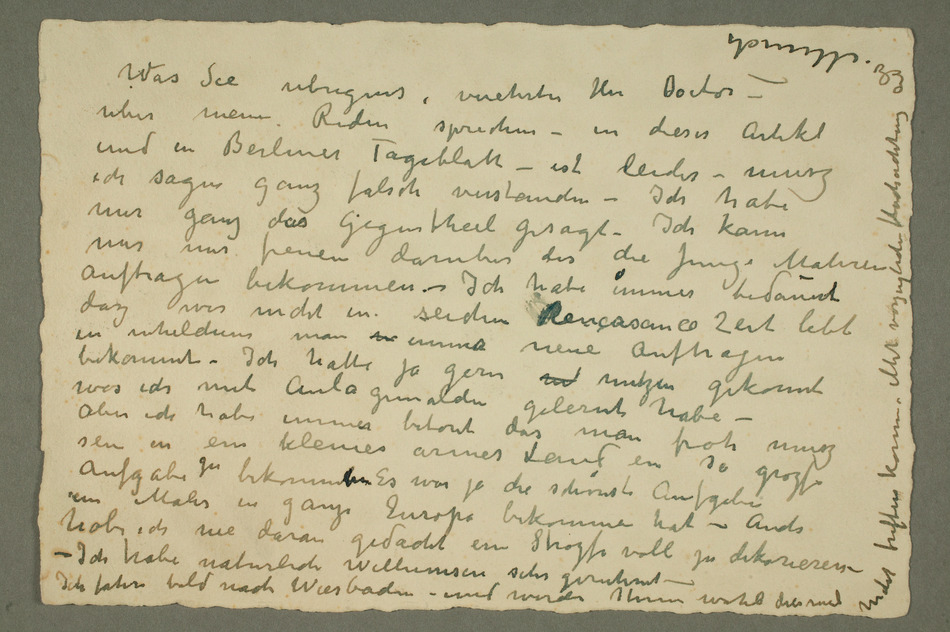 Was Sie ubrigens, verehrter Herr Doctor —
uber meine Reden sprechen — in dieser Artikel
und in Berliner Tageblatt — ist leider — musz
ich sagen ganz falsch verstanden — Ich habe
nur ganz das Gegentheil gesagt. Ich kann
mir nur freuen daruber das die junge Mahren
Auftragen bekommen. — Ich habe immer bedauert
dasz wir nicht in seichen Rençasance Zeit lebt
in welchens man immer neue Auftragen
bekommt. Ich hatte ja gern nutzen gekonnt
was ich mit Aula gemalden gelernt habe —
Aber ich habe immer betont das man froh musz
sein in ein kleines armes Land ein so grosze
Aufgabe zu bekommen Es war ja die schönste Aufgabe
ein Maler in ganz Europa bekommen hat — Auch
habe ich nie daran gedacht ein Strasze voll zu dekorieren —
— Ich habe naturlich Willumsen sehr geruhmt —
Ich fahre bald nach Wiesbaden — und werde Ihnen wohl diesmal
nicht treffen konnen. Mit vorzuglicher Hochachtung
E Munch